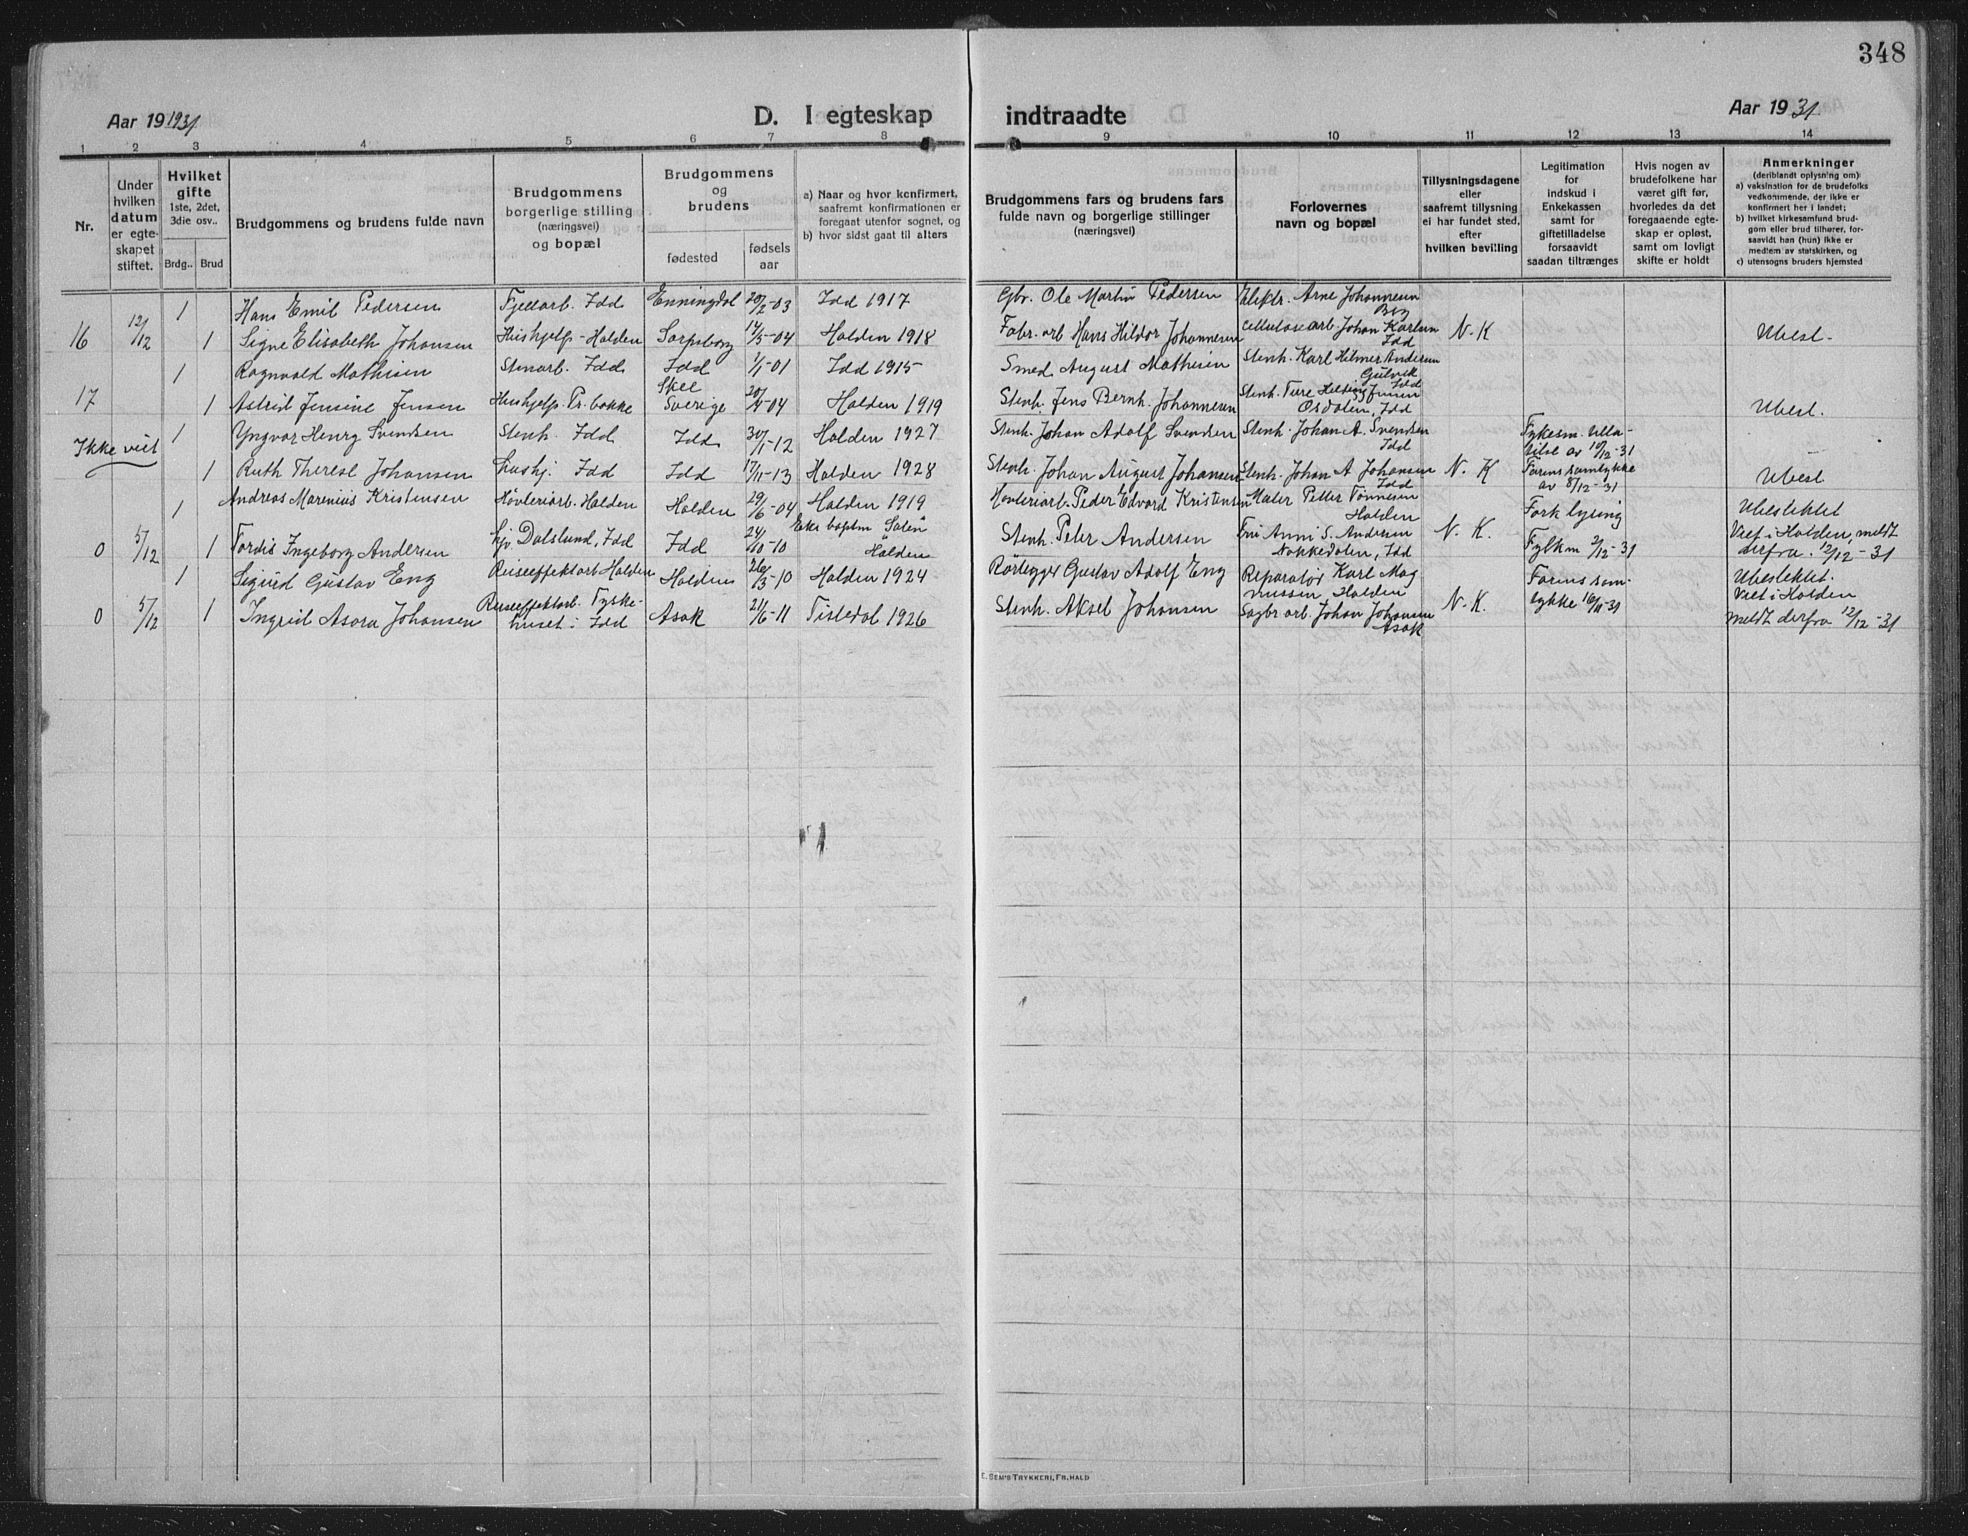 348
Aar 19 1931
D. I egteskap
indtraadte
Aar 19 31
1 2 3 4 5 6 7 8 9 10 11 12 13 14
Nr.
Under hvilken datum er egteskapet stiftet.
Hvilket gifte 1ste, 2det, 3die osv..
Brdg.. Brud
Brudgommens og brudens fulde navn
Brudgommens borgerlige stilling (næringsvei) og bopæl
Brudgommens og brudens
fødested
fødsels aar
a) Naar og hvor konfirmert, saafremt konfirmationen er foregaat utenfor sognet, og
b) hvor sidst gaat til alters
Brudgommens fars og brudens fars fulde navn og borgerlige stillinger (næringsvei)
Forlovernes navn og bopæl
Tillysningsdagene eller saafremt tillysning ei har fundet sted, efter hvilken bevilling
Legitimation for indskud i Enkekassen samt for giftetilladelse forsaavidt saadan tiltrænges
Hvis nogen av brudefolkene har været gift før, hvorledes da det foregaaende egteskap er opløst, samt om lovligt skifte er holdt
Anmerkninger (deriblandt oplysning om)
a) vaksination for de brudefolks vedkommende, der ikke er konfirmert her i landet;
b) hvilket kirkesamfund brudgom eller brud tilhører, forsaavidt han (hun) ikke er medlem av statskirken, og
c) utensogns bruders hjemsted
1 Hans Emil Pedersen Fjellarb. Idd Enningdal 20/2-03 Idd 1917 Gbr. Ole Martin Pedersen Elektr. Arne Johannesen Berg
16 12/12 1 Signe Elisabeth Johansen Hushjelp - Halden Sarpsborg 17/5-04 Halden 1918 Fabr. arb Hans Hildor Johannesen Cellulosearb. Johan Karlsen Idd N.K Ubesl.
1 Ragnvald Mathisen Stenarb. Idd Idd 1/1-01 Idd 1915 Smed August Mathisen Stenh. Karl Hilmer Andersen Gulvik Idd
17 1 Astrid Jensine Jensen Hushjelp Pr. bakke Skee Sverige 20/4-04 Halden 1919 Stenh. Jens Bernh. Johannesen Stenh. Ture Helding Jensen Osdalen, Idd Ubesl.
Ikke viet 1 Yngvar Henry Svendsen Stenh. Idd Idd 30/1-12 Halden 1927 Stenh. Johan Adolf Svendsen Stenh. Johan A. Svendsen Idd Fylkesm. tillatelse av 10/12-31
1 Ruth Therese Johansen hushj. Idd Idd 17/11-13 Halden 1928 Stenh. Johan August Johansen Stenh. Johan A Johansen Idd N.K Farens samtykke av 8/12-31 Ubesl
1 Andreas Marenius Kristensen Høvleriarb. Halden Halden 29/6-04 Halden 1919 Høvleriarb. Peder Edvard Kristensen Maler Petter Tønnesen Halden Fork lysing Ubeslektet
0 5/12 1 Tordis Ingeborg Andersen hj. Dalslund, Idd Idd 24/10-10 Eke baptm "Salen" Halden Stenh. Peter Andersen Fru Anni S. Andersen Nokkedalen, Idd N.K. Fylkm 2/12-31 Viet i Halden, meldt derfra 12/12-31
1 Sigurd Gustav Eng Reiseeffektarb Halden Halden 26/3-10 Halden 1924 Rørlegger Gustav Adolf Eng Reparatør Karl Magnussen, Halden Farens sam- Ubeslektet.
0 5/12 1 Ingrid Asora Johansen Reiseeffektarb. Tyskehuset i Idd Asak 21/6-11 Tistedal 1926 Stenh. Aksel Johansen Sagbr arb. Johan Johansen Asak N.K. tykke 16/11-31 Viet i Halden meldt derfra 12/12-31
E. SEM'S TRYKKERI, FR.HALD